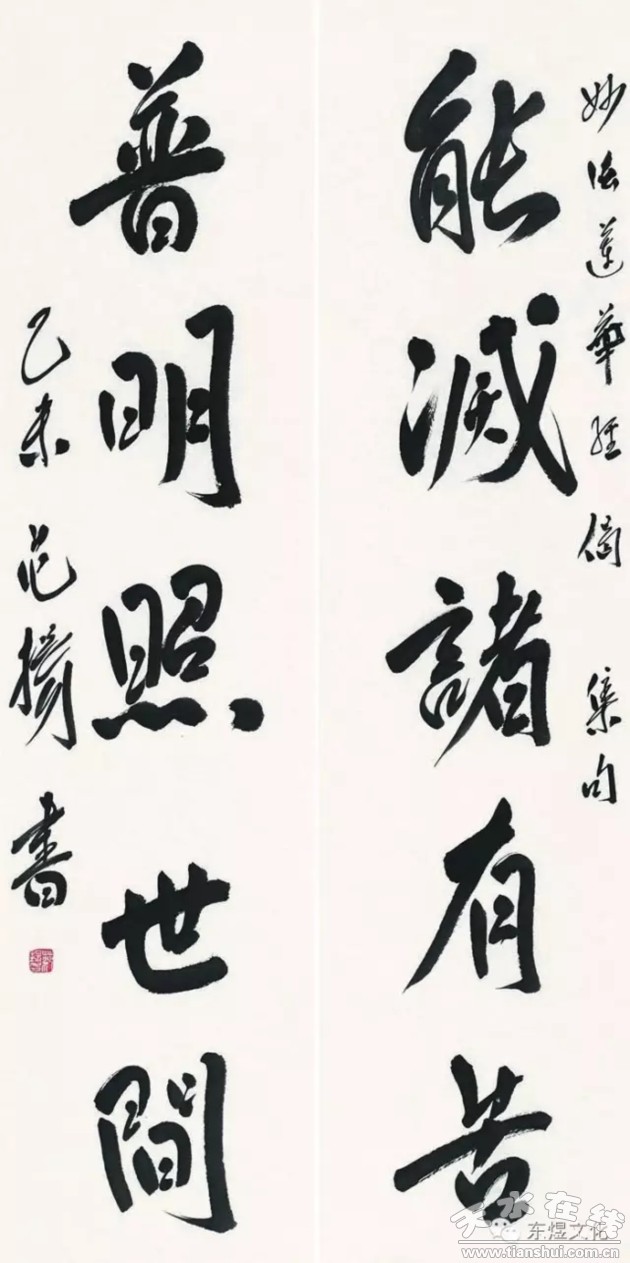 妙法蓮華經偈 集句
能滅諸有苦
普明照世間
乙未 范揚書
天水在线
东煜文化
www.tianshui.com.cn